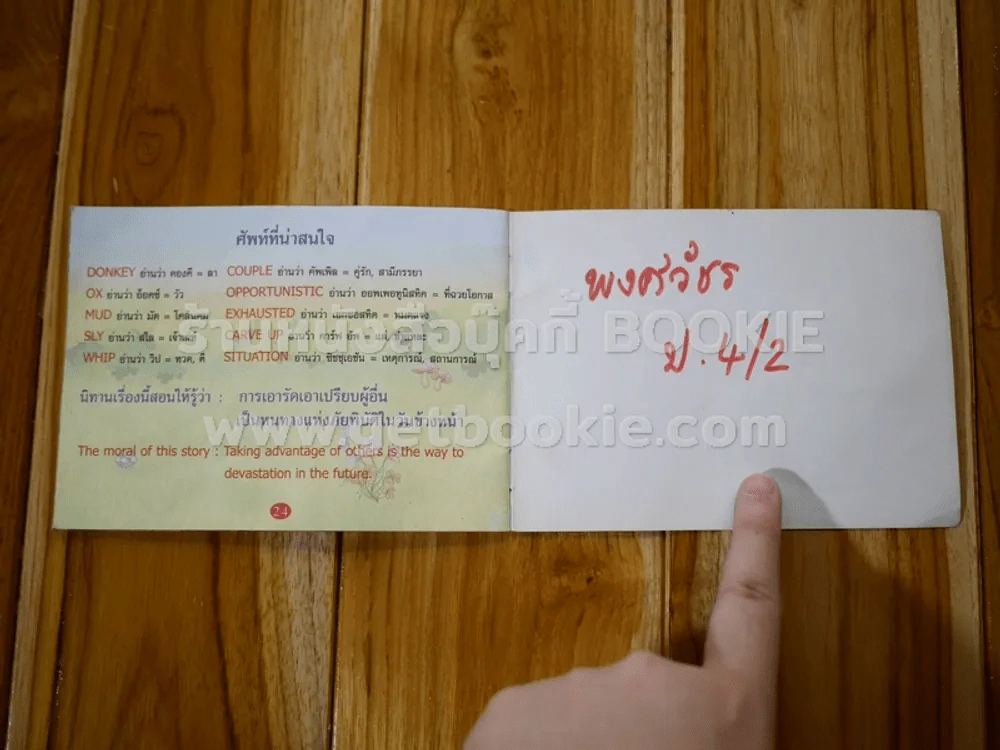 ศัพท์ที่น่าสนใจ
DONKEY อ่านว่า ดองคี = ลา COUPLE อ่านว่า คัพเพิล = คู่รัก, สามีภรรยา
OX อ่านว่า อ๊อคซ์ = วัว OPPORTUNISTIC อ่านว่า ออพเพอทูนิสทิค = ที่ฉวยโอกาส
MUD อ่านว่า มัด = โคลนตม EXHAUSTED อ่านว่า = หมดแรง
SLY อ่านว่า สไล = เจ้าเล่ห์ CARVE UP อ่านว่า คาร์ฟ อัพ =
WHIP อ่านว่า วิป = หวด, ตี SITUATION อ่านว่า ซิชชุเอชัน = เหตุการณ์, สถานการณ์
นิทานเรื่องนี้สอนให้รู้ว่า : การเอารัดเอาเปรียบผู้อื่น
เป็นหนทางแห่งภัยพิบัติในวันข้างหน้า
The moral of this story : Taking advantage of others is the way to
devastation in the future.
24
พงศวัชร
ป.4/2
ร้านหนังสือบุ๊คกี้ BOOKIE
www.getbookie.com